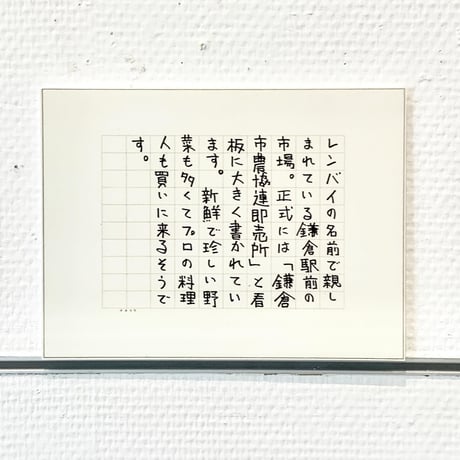 レンバイの名前で親し
まれている鎌倉駅前の
市場。正式には「鎌倉
市農協連即売所」と看
板に大きく書かれてい
ます。新鮮で珍しい野
菜も多くてプロの料理
人も買いに来るそうで
す。